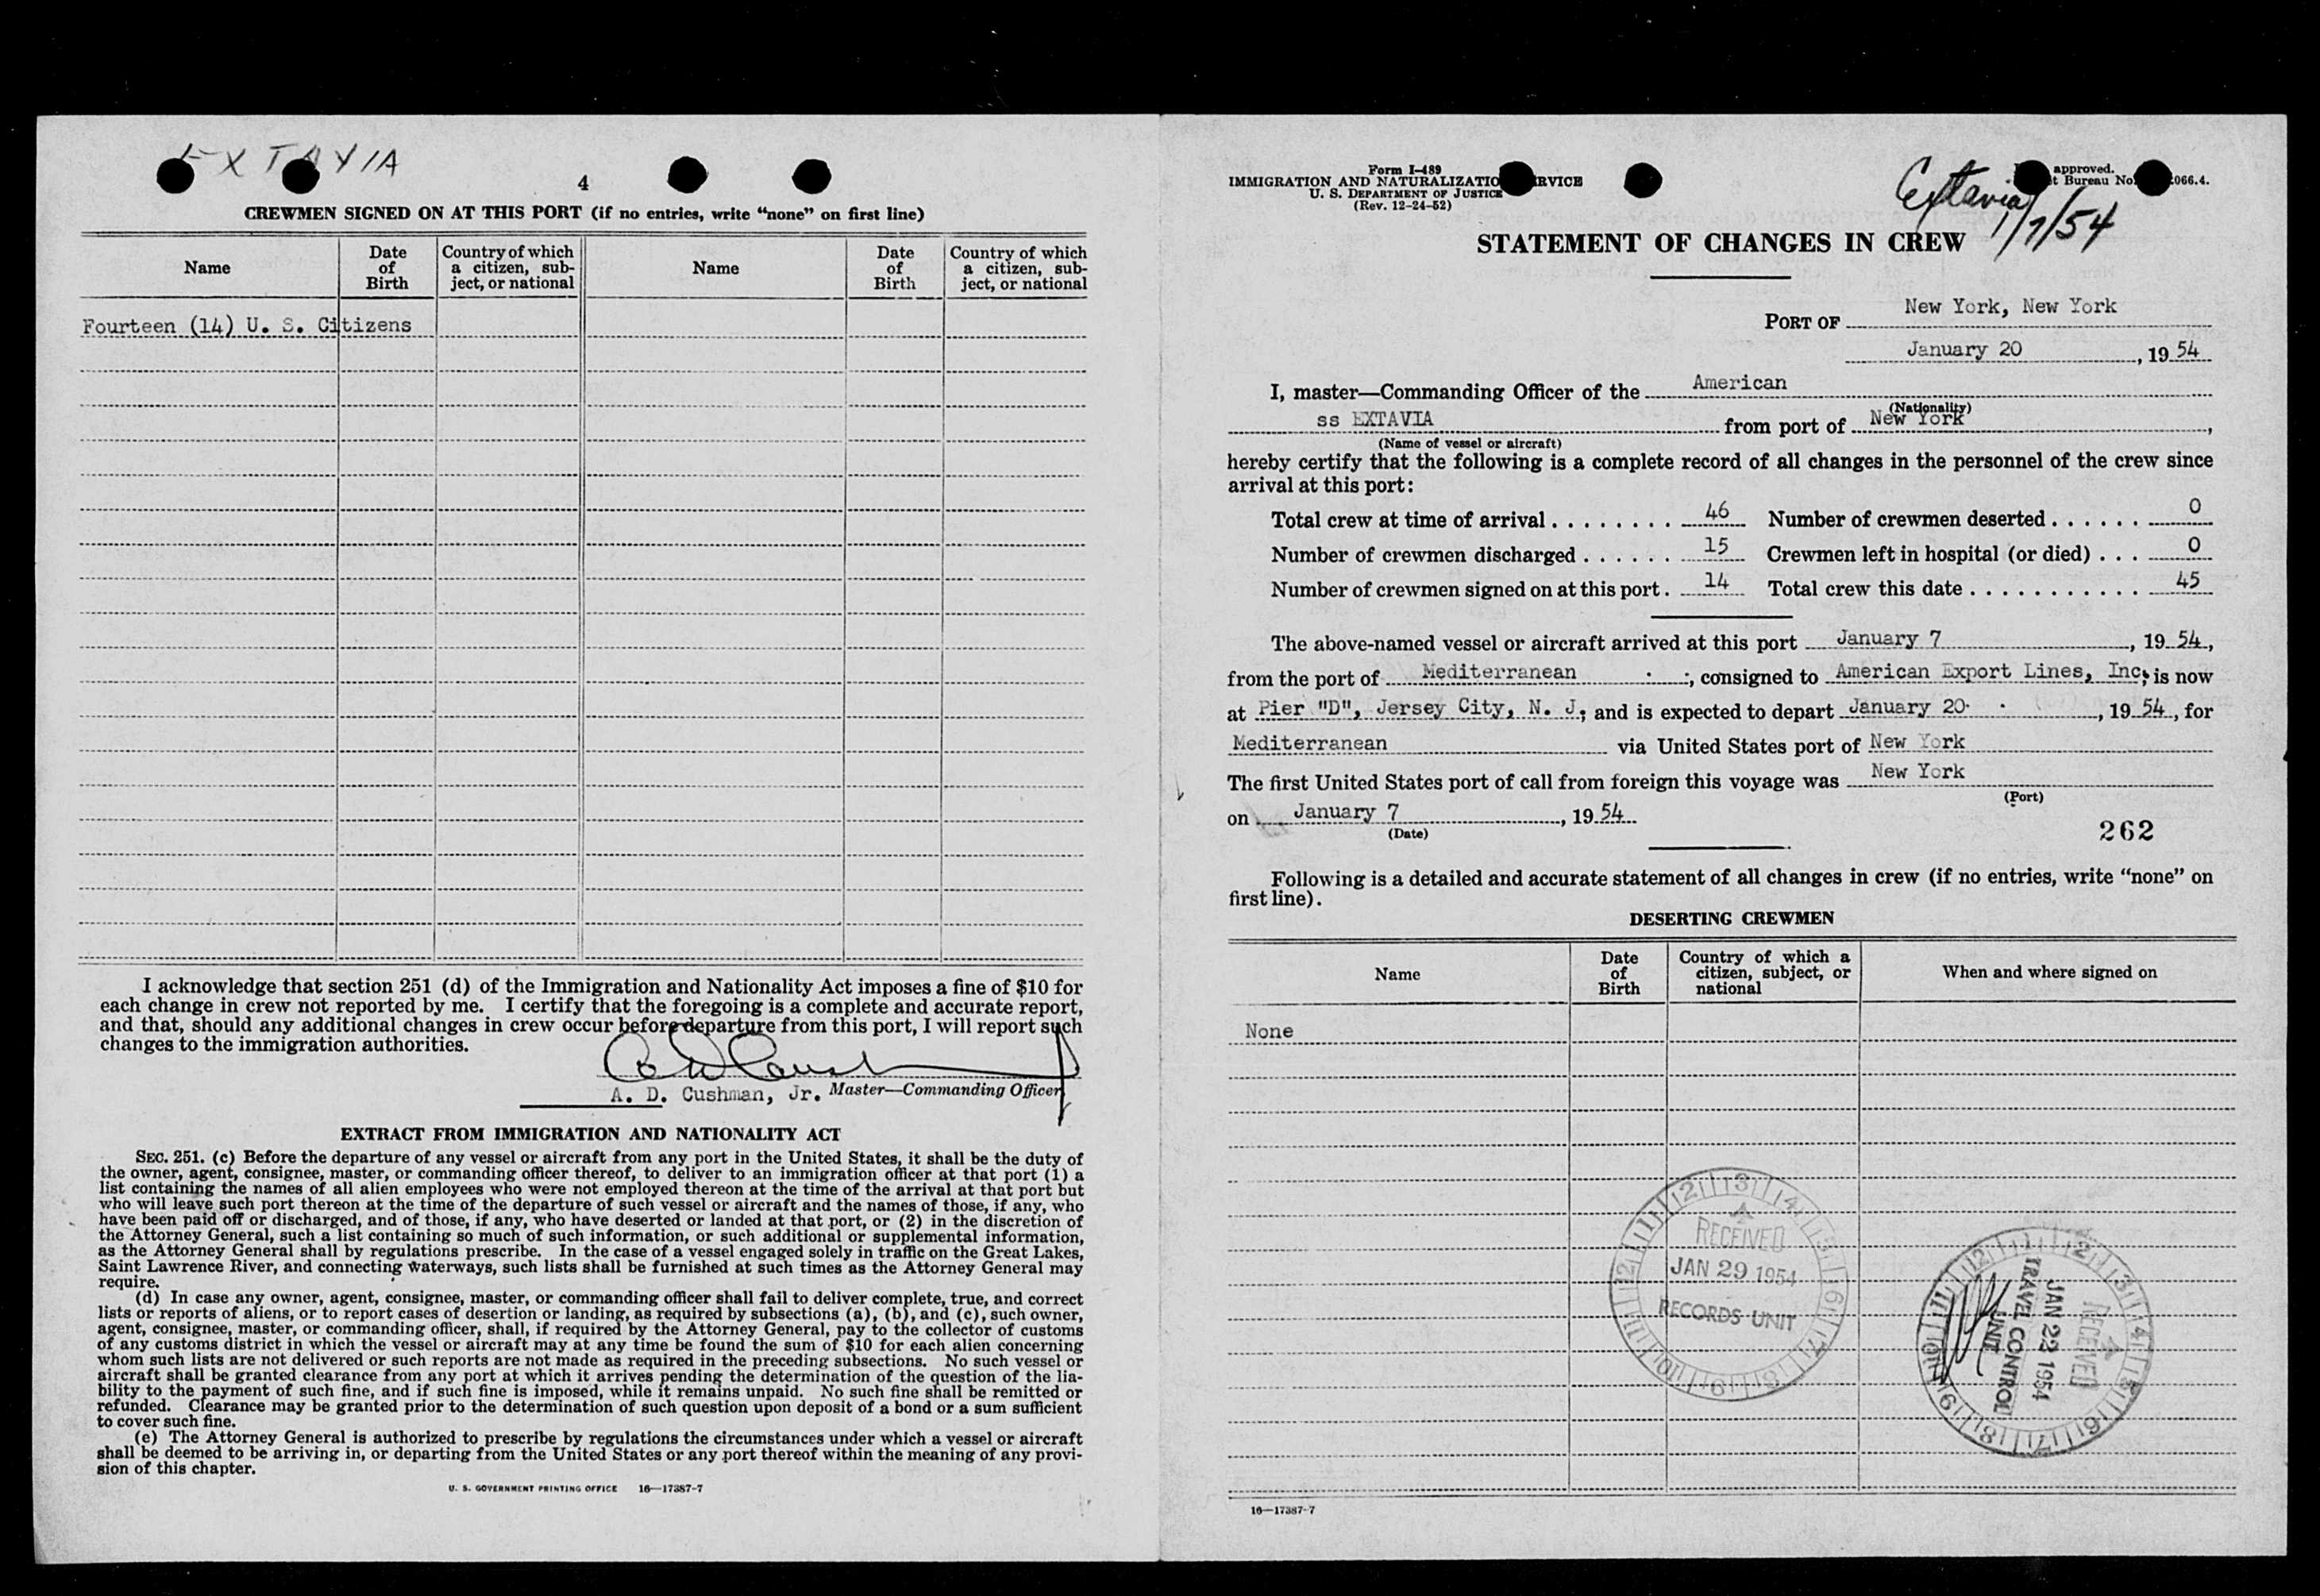 EXTAVIA
4
CREWMEN SIGNED ON AT THIS PORT (if no entries, write "none" on first line)
Name
Date of Birth
Country of which a citizen, sub-ject, or national
Name
Date of Birth
Country of which a citizen, sub-ject, or national
Fourteen (14) U. S. Citizens
I acknowledge that section 251 (d) of the Immigration and Nationality Act imposes a fine of $10 for
each change in crew not reported by me. I certify that the foregoing is a complete and accurate report,
and that, should any additional changes in crew occur before departure from this port, I will report such
changes to the immigration authorities.
A. D. Cushman, Jr. Master—Commanding Officer
EXTRACT FROM IMMIGRATION AND NATIONALITY ACT
SEC. 251. (c) Before the departure of any vessel or aircraft from any port in the United States, it shall be the duty of
the owner, agent, consignee, master, or commanding officer thereof, to deliver to an immigration officer at that port (1) a
list containing the names of all alien employees who were not employed thereon at the time of the arrival at that port but
who will leave such port thereon at the time of the departure of such vessel or aircraft and the names of those, if any, who
have been paid off or discharged, and of those, if any, who have deserted or landed at that port, or (2) in the discretion of
the Attorney General, such a list containing so much of such information, or such additional or supplemental information,
as the Attorney General shall by regulations prescribe. In the case of a vessel engaged solely in traffic on the Great Lakes,
Saint Lawrence River, and connecting waterways, such lists shall be furnished at such times as the Attorney General may
require.
(d) In case any owner, agent, consignee, master, or commanding officer shall fail to deliver complete, true, and correct
lists or reports of aliens, or to report cases of desertion or landing, as required by subsections (a), (b), and (c), such owner,
agent, consignee, master, or commanding officer, shall, if required by the Attorney General, pay to the collector of customs
of any customs district in which the vessel or aircraft may at any time be found the sum of $10 for each alien concerning
whom such lists are not delivered or such reports are not made as required in the preceding subsections. No such vessel or
aircraft shall be granted clearance from any port at which it arrives pending the determination of the question of the lia-
bility to the payment of such fine, and if such fine is imposed, while it remains unpaid. No such fine shall be remitted or
refunded. Clearance may be granted prior to the determination of such question upon deposit of a bond or a sum sufficient
to cover such fine.
(e) The Attorney General is authorized to prescribe by regulations the circumstances under which a vessel or aircraft
shall be deemed to be arriving in, or departing from the United States or any port thereof within the meaning of any provi-
sion of this chapter.
U. S. GOVERNMENT PRINTING OFFICE 16—17387-7
Form I-489
IMMIGRATION AND NATURALIZATIO RVICE
U. S. DEPARTMENT OF JUSTICE
(Rev. 12-24-52)
approved.
t Bureau No. 066.4.
Extavia
1/7/54
STATEMENT OF CHANGES IN CREW
PORT OF New York, New York
January 20, 1954
I, master—Commanding Officer of the American
(Nationality)
ss EXTAVIA from port of New York,
(Name of vessel or aircraft)
hereby certify that the following is a complete record of all changes in the personnel of the crew since
arrival at this port:
Total crew at time of arrival ........ 46 Number of crewmen deserted ...... 0
Number of crewmen discharged ...... 15 Crewmen left in hospital (or died) ... 0
Number of crewmen signed on at this port. 14 Total crew this date ........... 45
The above-named vessel or aircraft arrived at this port January 7, 1954,
from the port of Mediterranean, consigned to American Export Lines, Inc; is now
at Pier "D", Jersey City, N. J; and is expected to depart January 20, 1954, for
Mediterranean via United States port of New York
The first United States port of call from foreign this voyage was New York
(Port)
on January 7, 1954
(Date)
262
Following is a detailed and accurate statement of all changes in crew (if no entries, write "none" on
first line).
DESERTING CREWMEN
Name
Date of Birth
Country of which a citizen, subject, or national
When and where signed on
None
RECEIVED
JAN 29 1954
RECORDS UNIT
RECEIVED
JAN 22 1954
TRAVEL CONTROL
UNIT
16—17387-7